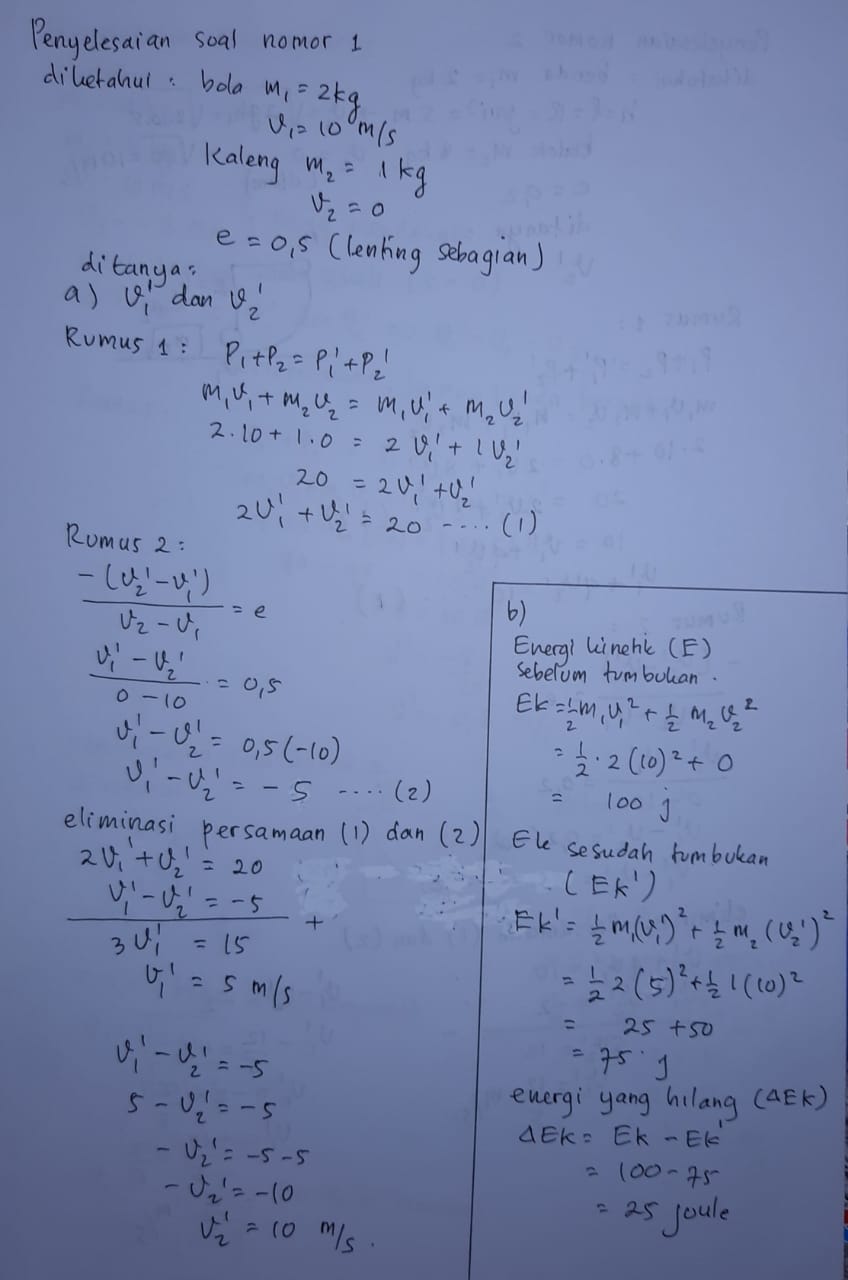 Penyelesaian soal nomor 1
diketahui : bola m₁ = 2kg
v₁ = 10 m/s
Kaleng m₂ = 1 kg
v₂ = 0
e = 0,5 (lenting sebagian)
ditanya :
a) v₁' dan v₂'
Rumus 1 : P₁+P₂ = P₁'+P₂'
m₁v₁ + m₂v₂ = m₁v₁' + m₂v₂'
2.10 + 1.0 = 2 v₁' + 1 v₂'
20 = 2v₁' + v₂'
2v₁' + v₂' = 20 .... (1)
Rumus 2 :
-(v₂'-v₁')/(v₂-v₁) = e
(v₁'-v₂')/(0-10) = 0,5
v₁' - v₂' = 0,5(-10)
v₁' - v₂' = -5 .... (2)
eliminasi persamaan (1) dan (2)
2v₁' + v₂' = 20
v₁' - v₂' = -5
+
3v₁' = 15
v₁' = 5 m/s
v₁' - v₂' = -5
5 - v₂' = -5
- v₂' = -5-5
- v₂' = -10
v₂' = 10 m/s.
b)
Energi kinetik (E)
sebelum tumbukan.
Ek = ½m₁v₁² + ½ m₂v₂²
= ½ . 2 (10)² + 0
= 100 j
Ek sesudah tumbukan
(Ek')
Ek' = ½ m₁(v₁')² + ½ m₂ (v₂')²
= ½ 2 (5)² + ½ 1 (10)²
= 25 + 50
= 75 j
energi yang hilang (ΔEk)
ΔEk = Ek - Ek'
= 100 - 75
= 25 joule